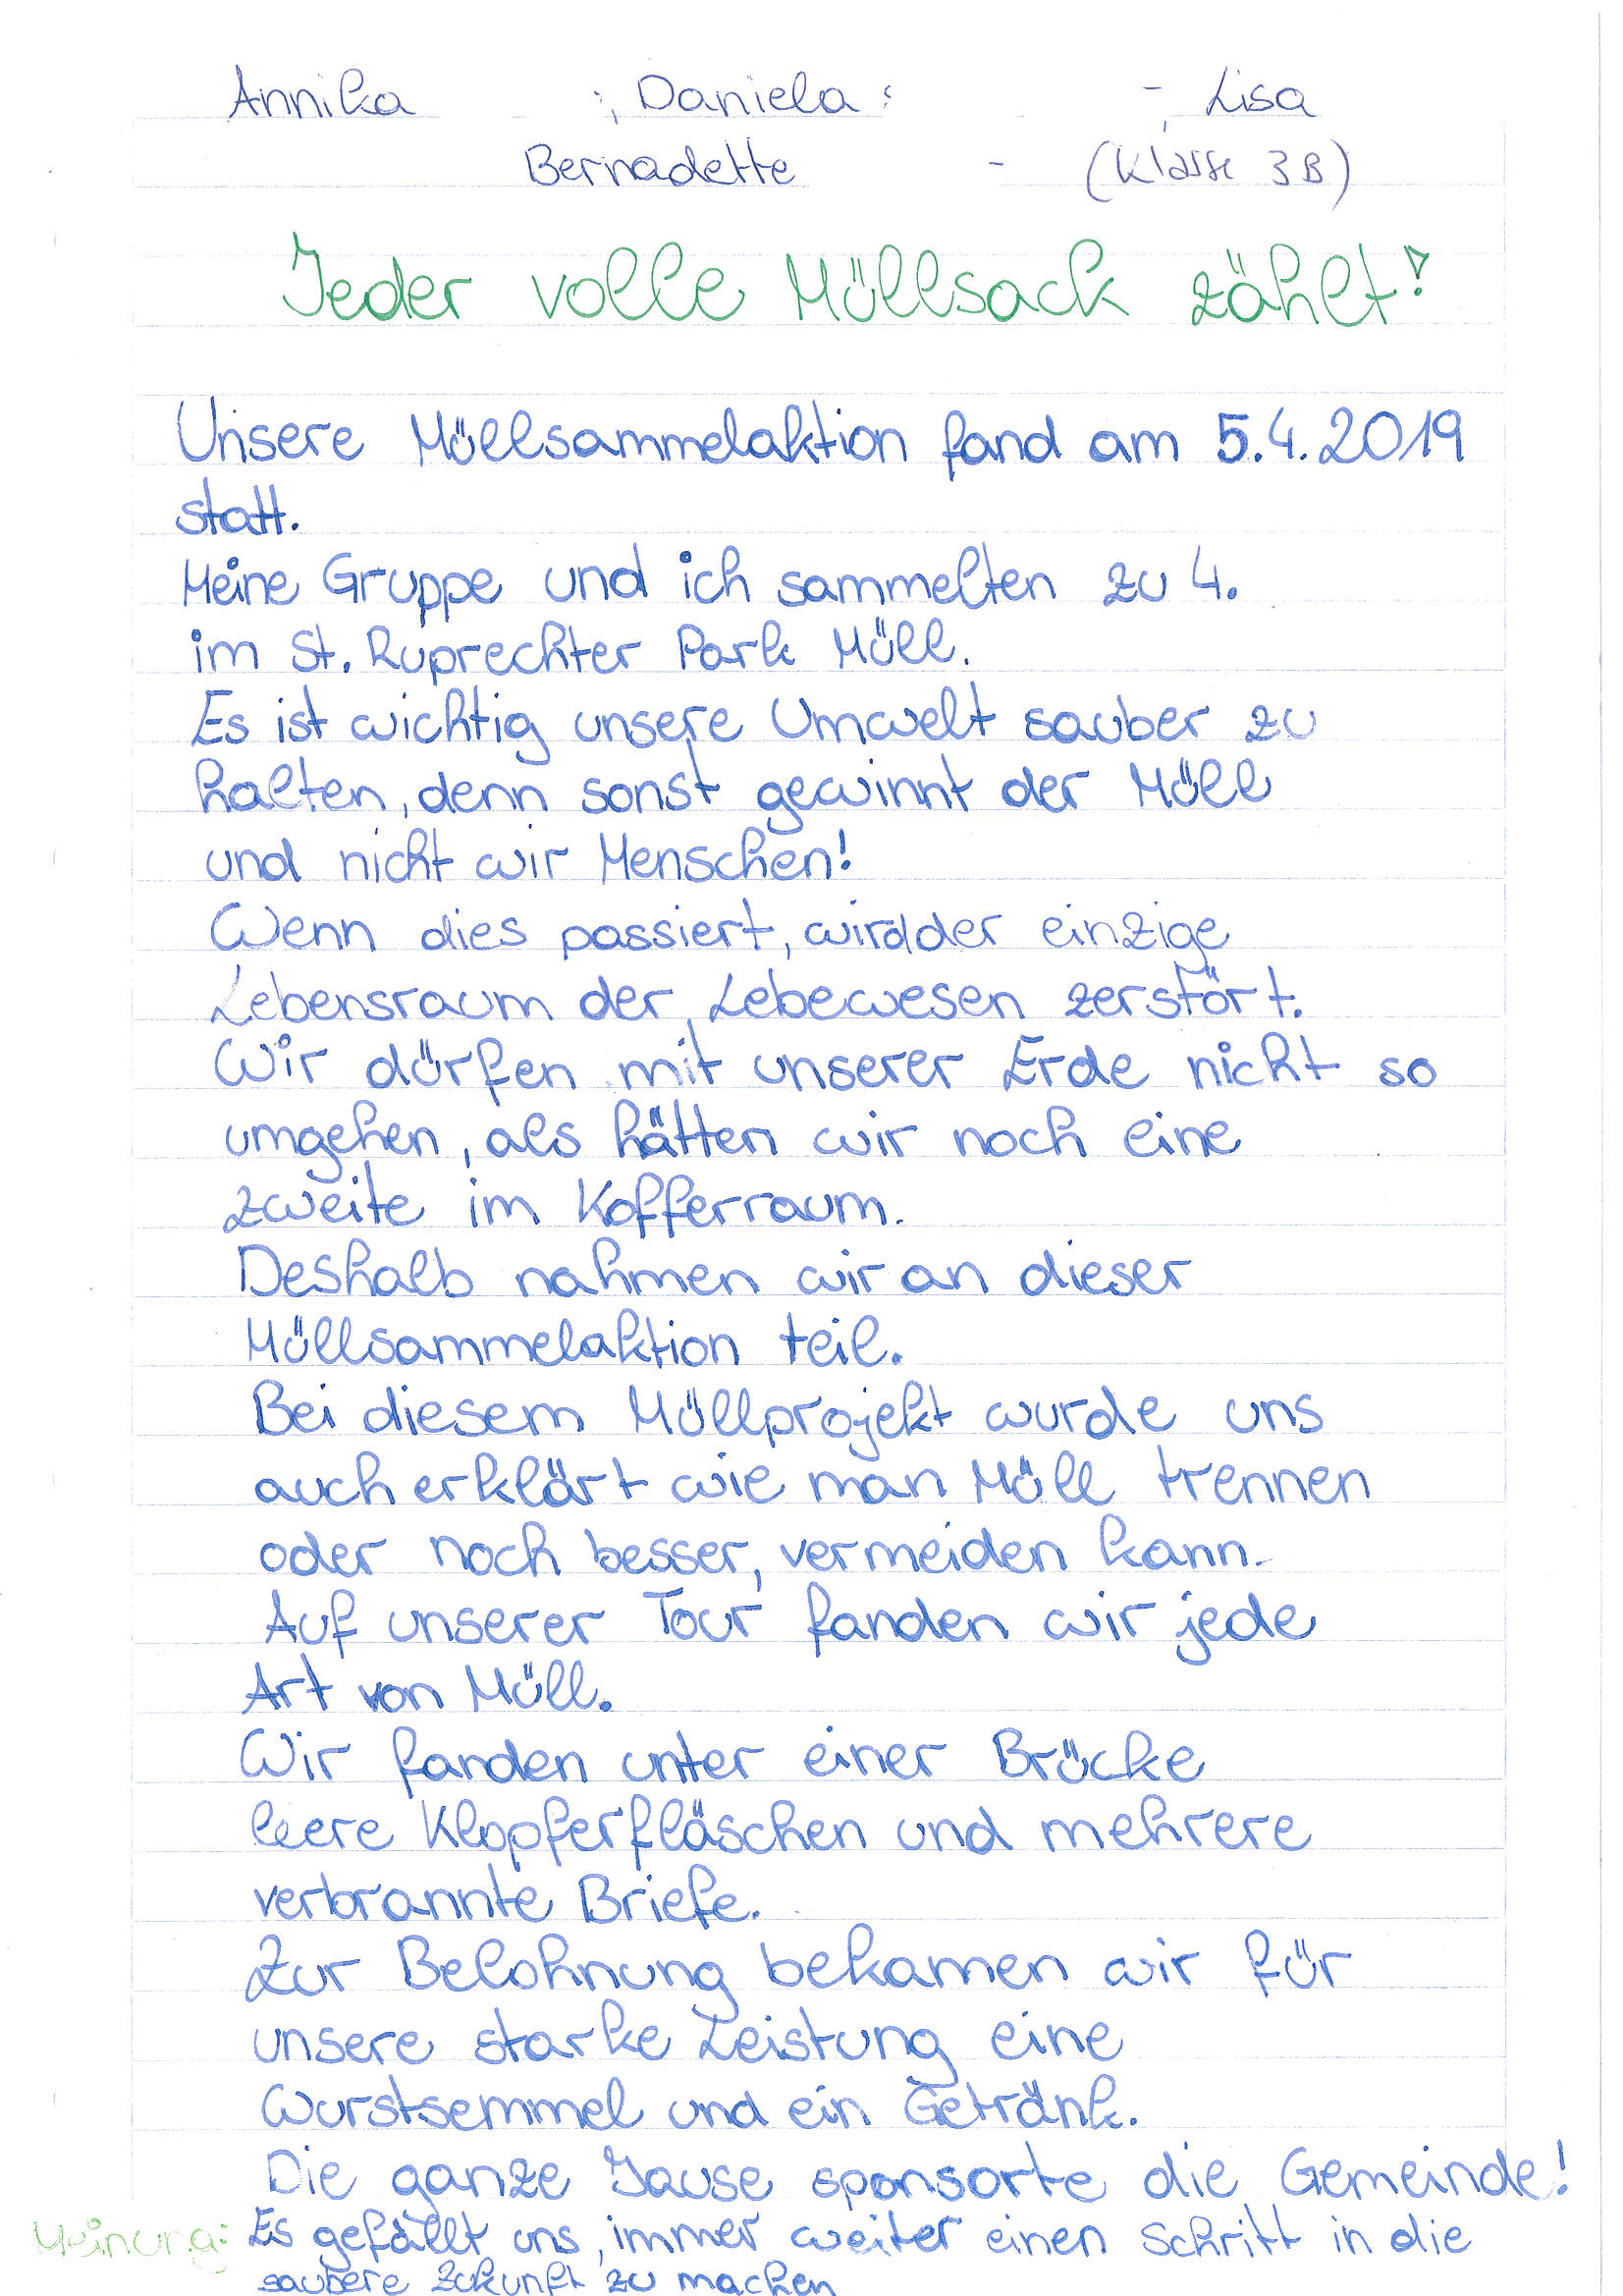 Annika , Daniela - , Lisa
Bernadette - (Klasse 3B)
Jeder volle Müllsack zählt!
Unsere Müllsammelaktion fand am 5.4.2019
statt.
Meine Gruppe und ich sammelten zu 4.
im St. Ruprechter Park Müll.
Es ist wichtig unsere Umwelt sauber zu
halten, denn sonst gewinnt der Müll
und nicht wir Menschen!
Wenn dies passiert, wirdder einzige
Lebensraum der Lebewesen zerstört.
Wir dürfen mit unserer Erde nicht so
umgehen, als hätten wir noch eine
zweite im Kofferraum.
Deshalb nahmen wir an dieser
Müllsammelaktion teil.
Bei diesem Müllprojekt wurde uns
auch erklärt wie man Müll trennen
oder noch besser, vermeiden kann.
Auf unserer Tour fanden wir jede
Art von Müll.
Wir fanden unter einer Brücke
leere Klopferfläschen und mehrere
verbrannte Briefe.
Zur Belohnung bekamen wir für
unsere starke Leistung eine
Wurstsemmel und ein Getränk.
Die ganze Jause sponsorte die Gemeinde!
Meinung: Es gefällt uns, immer weiter einen Schritt in die
saubere Zukunft zu machen